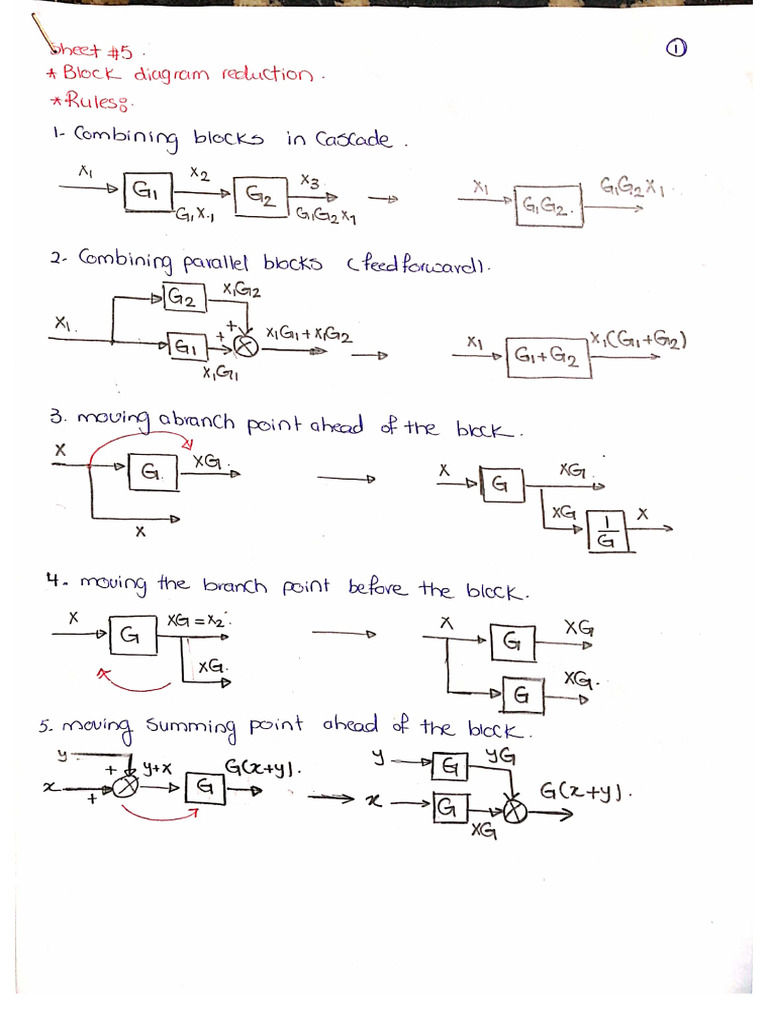 Sheet #5.
①
* Block diagram reduction.
* Rules:
1- Combining blocks in Cascade.
X1 G1 X2 G1X1 G2 X3 G1G2X1 X1 G1G2. G1G2X1.
2- Combining parallel blocks (feedforward).
G2 X1G2
X1. G1 + + X1G1+X1G2 X1 G1+G2 X1(G1+G2)
X1G1
3. moving abranch point ahead of the block.
X G. XG. X G XG.
X XG 1/G X
4. moving the branch point before the block.
X G XG=X2. X G XG
XG. G XG.
5. moving summing point ahead of the block.
y + y+x G(x+y). y G yG
x + G x G G(x+y).
XG